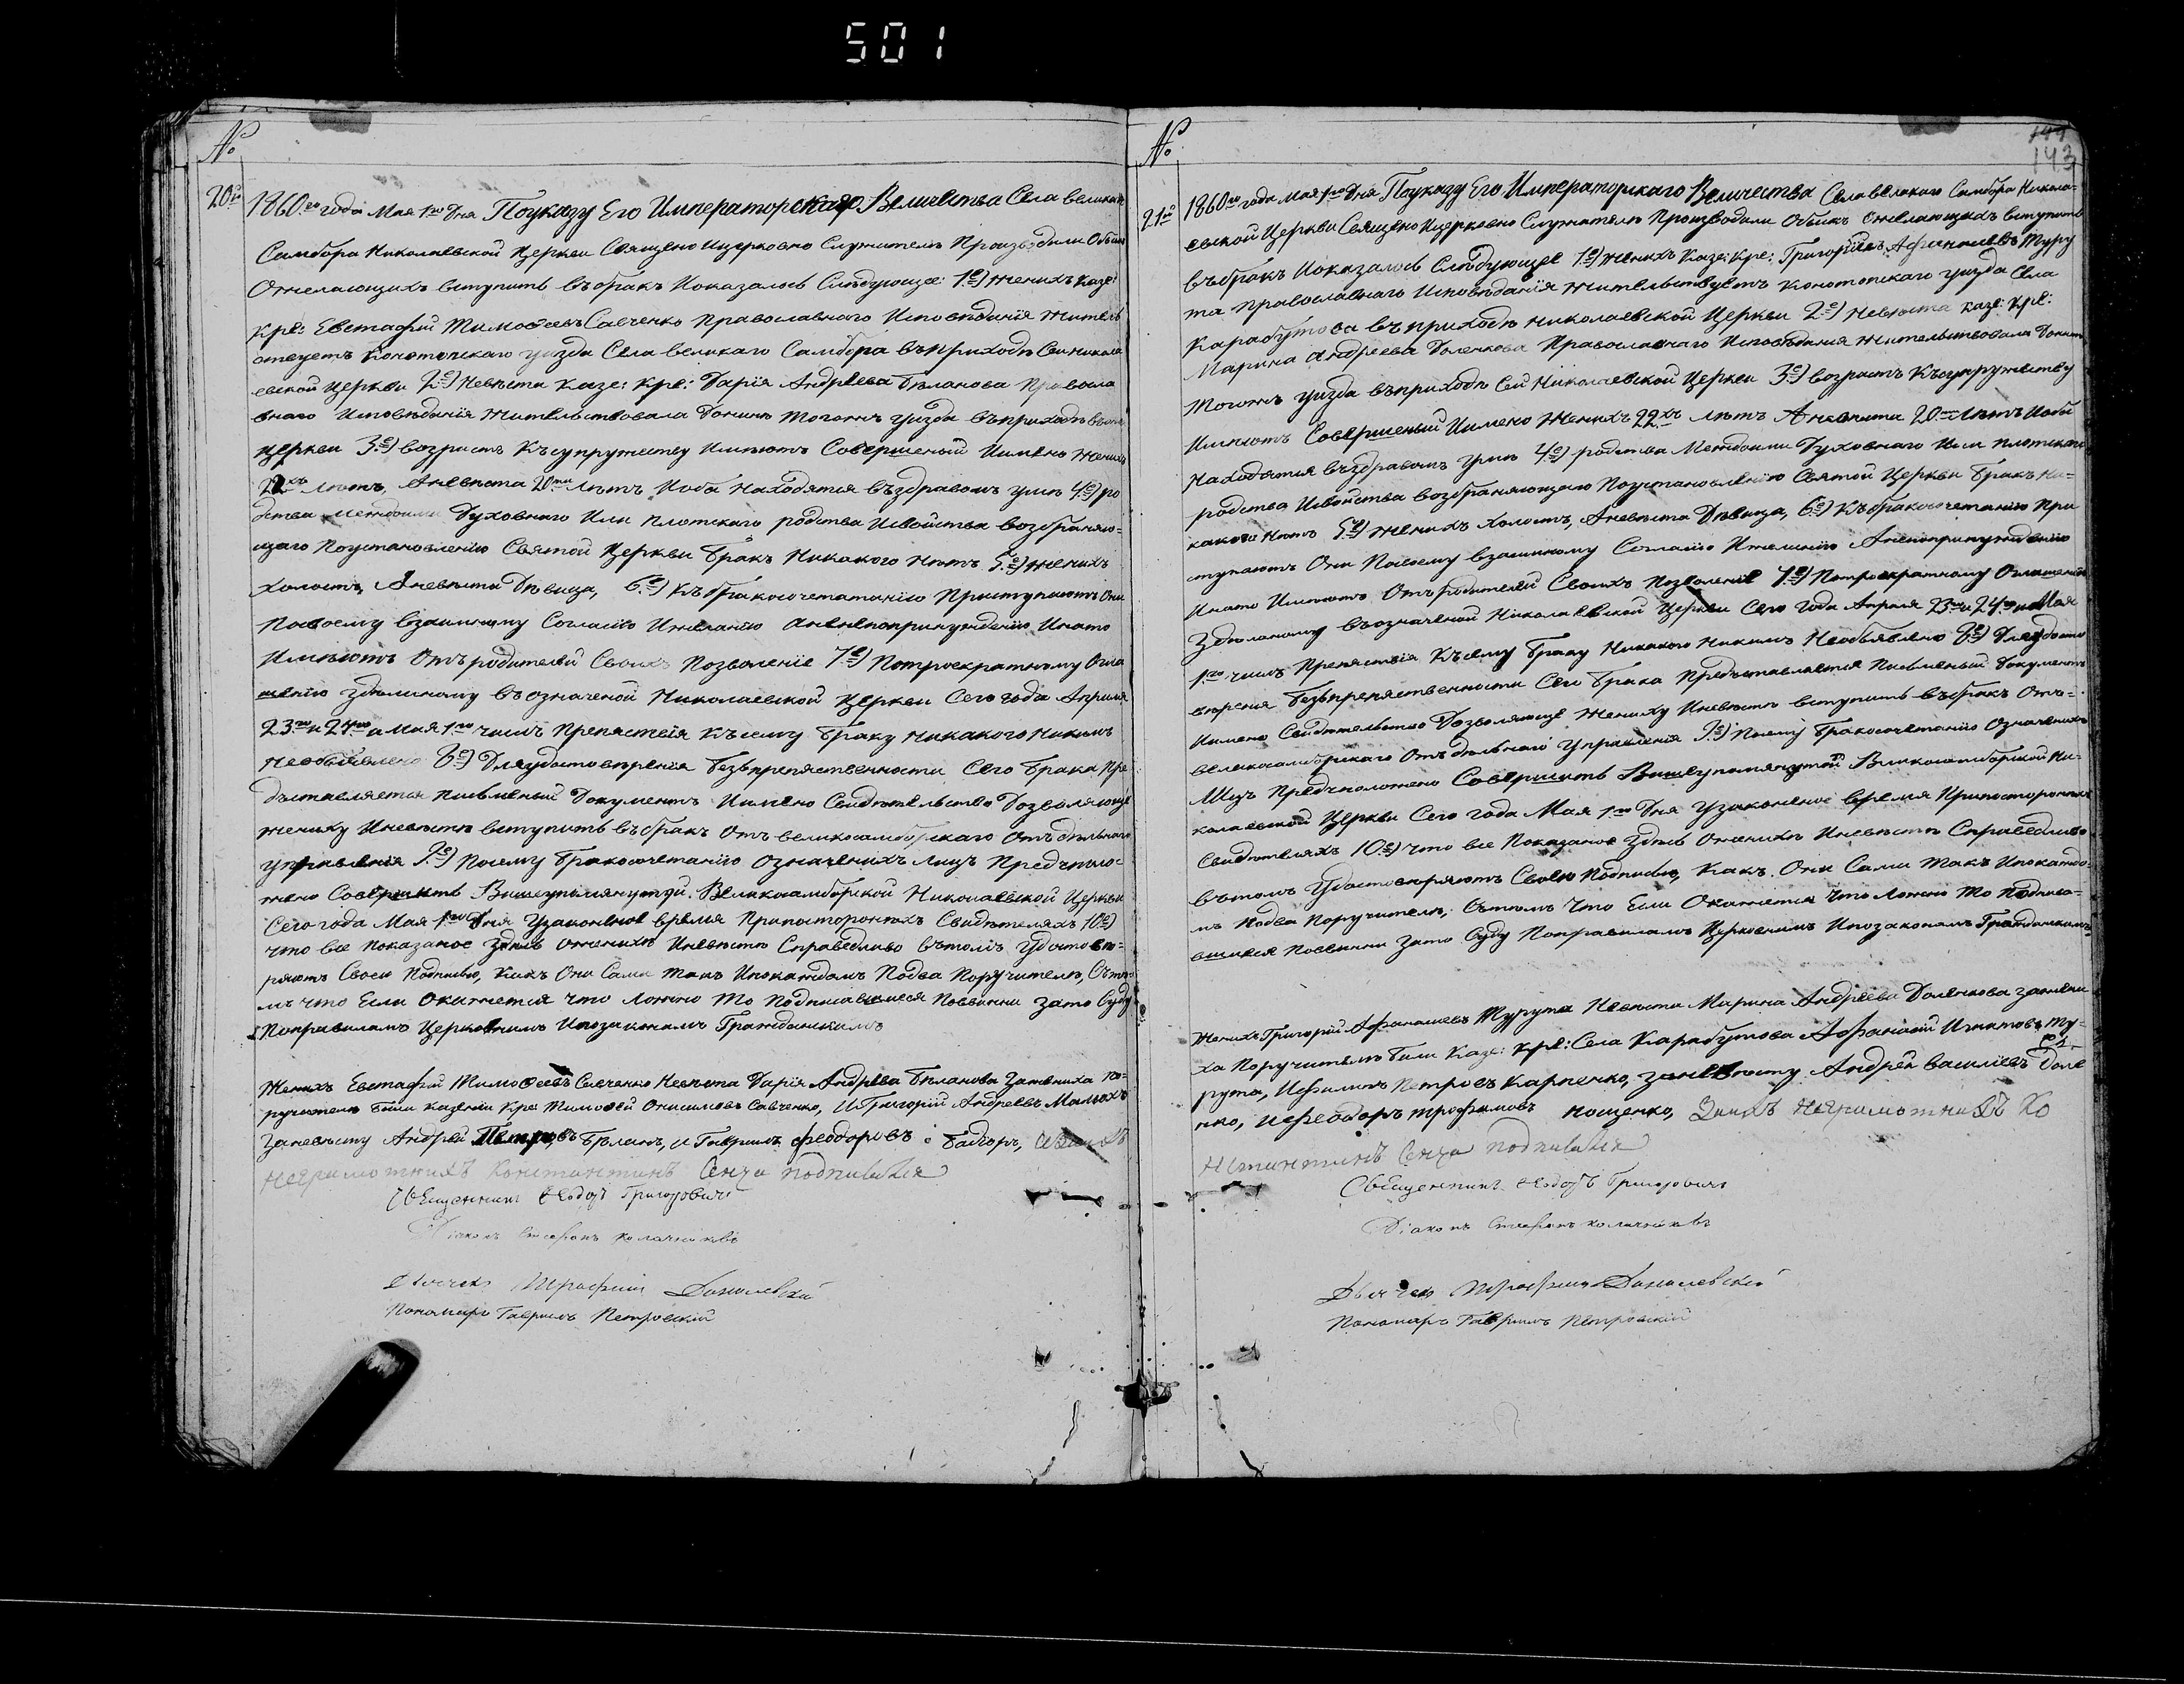 501
№
20й 1860го года Мая 1го Дня Поуказу Его Императорскаго Величества Села великаго
Самбора Николаевской Церкви Священо Ицерковно Служители Производили Обыскъ
Ожелающихъ вступить въбракъ Иоказалось Слѣдующее: 1е) женихъ Казе:
Кре: Евстафий Тимофеевъ Савченко православного Исповѣданія жител
ствуетъ Конотопскаго уизда Села великаго Самбора въприходѣ Сей Никола
евской Церкви 2е) Невѣста Казе: Кре: Дарія Андреева Бѣланова Правосла
вного Исповѣданія жительствовала Донинѣ тогожъ уизда въприходѣ
Церкви 3е) возрастъ Ксупружеству Имѣютъ Совершеный Иимено жених
22хъ лѣтъ, Аневѣста 20ти лѣтъ Иоба Находятся въздравомъ уми 4е) ро
дства междоими Духовнаго Или плотскаго родства Исвойства возбраняю=
щаго Поустановленію Святой Церкви Бракъ Никакого Нетъ 5е) женихъ
холостъ, Аневѣста Дѣвица, 6е) Къбракосочетатанію Приступаютъ Они
Посвоему взаимному Согласію Ижеланію Аненепринуждению Инато
Имѣютъ Отъродителей Своихъ Позволеніе 7е) Потроекратному Огла
шению Здѣланому въозначеной Николаевской Церкви Сего года Апреля
23го и 24го а Мая 1го числъ Препяствія Къ сему Браку Никакого Никимъ
Необъявлено 8е) Дляудостовѣренія Безъпрепятственности Сего Брака Пре
дъставляется писменый Документъ Иимено Свидѣтельство Дозволяюще
жениху Иневѣсте вступить въбракъ Отъ великосамборскаго Отъдѣльнаго
управленія 9е) Посему бракосочетанію Означенихъ лицъ Предположе
жено Совершить Вишеупомянутой Великосамборской Николаевской Церкви
Сего года Мая 1го Дня Узаконеное время Припосторонихъ Свидѣтеляхъ 10е)
что все показаное здесь Оженихе Иневѣсте Справедливо вътомъ Удостовѣ=
ряютъ Своею Подписью, Какъ Они Сами такъ Ипокаждомъ Подва Поручителя, Сътѣ
мъ что Если окажется что ложно то Подписавшиеся Повинни зато Суду
Поправиламъ Церковнимъ Ипозаконамъ Гражданскимъ
Женихъ Евстафий Тимофеевъ Савченко Невѣста Дарія Андреева Бѣланова Зажениха по=
ручители Били Казении Кре: Тимофей Онисимовъ Савченко, ИГригорий Андреевъ
Заневѣсту Андрей Петровъ Бѣланъ, и Гаврилъ Феодоровъ
Неграмотнихъ Константинъ Сенча подписался
Священникъ Феодоръ Григоровичъ
Діаконъ Стефанъ
Дьячокъ Трофимъ Данилевский
Пономарь Гавриилъ Петровский
№
143
21й 1860го года Мая 1го Дня Поуказу Его Императорскаго Величества Села великаго Самбора Никола=
евской Церкви Священо Ицерковно Служители Производили Обыскъ Ожелающихъ вступить
въбракъ Иоказалось Слѣдующее 1е) женихъ Казе: Кре: Григорий Афанасиевъ Туру
та православнаго Исповѣданія жительствуетъ Конотопскаго уизда Села
Карабутова въприходѣ Николаевской Церкви 2е) Невѣста Казе: Кре:
Марина Андреева Доленкова Православнаго Исповѣданія жительствовала Донинѣ
Тогожъ уизда въприходѣ Сей Николаевской Церкви 3е) возрастъ Ксупружеству
Имѣютъ Совершеный Иимено Женихъ 22хъ лѣтъ Аневѣста 20ти лѣтъ Иоба
Находятся въздравомъ уми 4е) родства Междоими Духовнаго Или плотскаго
родства Исвойства возбраняющаго Поустановленію Святой Церкви Бракъ Ни=
какого Нетъ 5е) женихъ холостъ, Аневѣста Дѣвица, 6е) Къбракосочетанію При
ступаютъ Они Посвоему взаимному Согласію Ижеланію Аненепринужденію
Инато Имѣютъ Отъродителей Своихъ Позволение 7е) Потроекратному Оглашению
Здѣланому въозначеной Николаевской Церкви Сего года Апреля 23го и 24го и Мая
1го числъ Препяствія Къ сему Браку Никакого Никимъ Необъявлено 8е) Дляудосто
вѣренія Безъпрепятственности Сего Брака Предъставляется Писменый Документъ
Иимено Свидѣтельство Дозволяюще Жениху Иневѣсте вступить въбракъ Отъ=
великосамборскаго Отъдѣльнаго Управленія 9е) Посему Бракосочетанію Означенихъ
Лицъ Предположено Совершить Вишеупомянутой Великосамборской Ни=
колаевской Церкви Сего года Мая 1го Дня Узаконеное время Припосторонихъ
Свидѣтеляхъ 10е) что все Показаное Здесь Оженихе Иневѣсте Справедливо
вътомъ Удостовѣряютъ Своею Подписью, Какъ Они Сами такъ Ипокаждо=
мъ Подва Поручителя, Сътѣмъ что Если Окажется что ложно то Подписа=
вшиеся Повинни Зато Суду Поправиламъ Церковнимъ Ипозаконамъ Гражданскимъ
Женихъ Григорий Афанасиевъ Турута Невѣста Марина Андреева Доленкова зажени
ха Поручители Били Казе: Кре: Села Карабутова Афанасий Игнатовъ Ту=
рута, Иефимъ Петровъ Карпенко, заневѣсту Андрей Василиевъ Доле
нко, Ифеодоръ трофимовъ нощенко, Заихъ Неграмотнихъ Ко
нстантинъ Сенча подписался
Священникъ Феодоръ Григоровичъ
Діаконъ Стефанъ
Дьячокъ Трофимъ Данилевский
Пономарь Гавриилъ Петровский